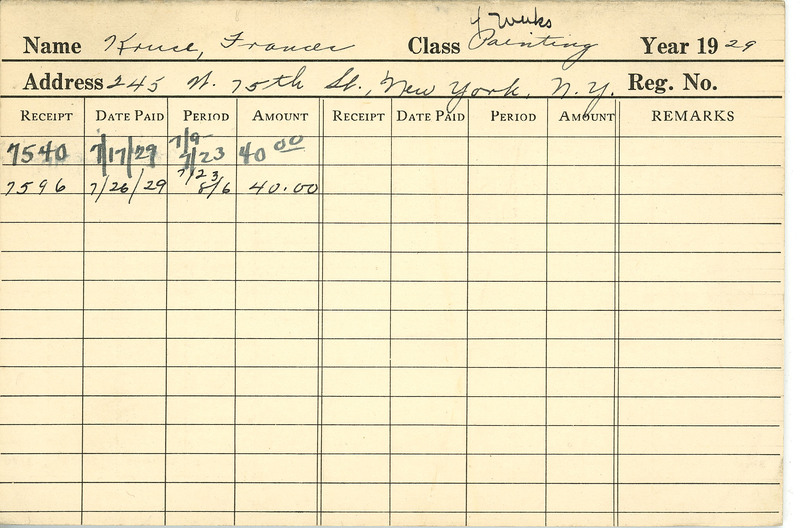 4 Weeks
Name Kruce, Frances Class Painting Year 19 29
Address 245 W. 75th St., New York, N.Y. Reg. No.
RECEIPT DATE PAID PERIOD AMOUNT RECEIPT DATE PAID PERIOD AMOUNT REMARKS
7540 7/17/29 7/9- 7/23 40 00
7596 7/26/29 7/23 8/6 40.00